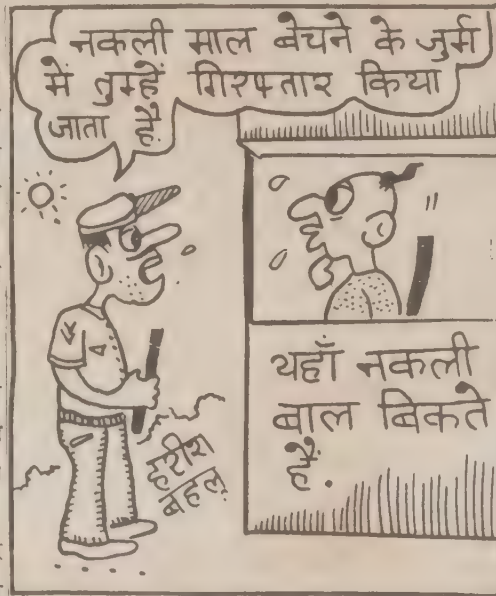 नकली माल बेचने के जुर्म
में तुम्हें गिरफ्तार किया
जाता है.
यहाँ नकली
बाल बिकते
हैं.
हरीश
बहल